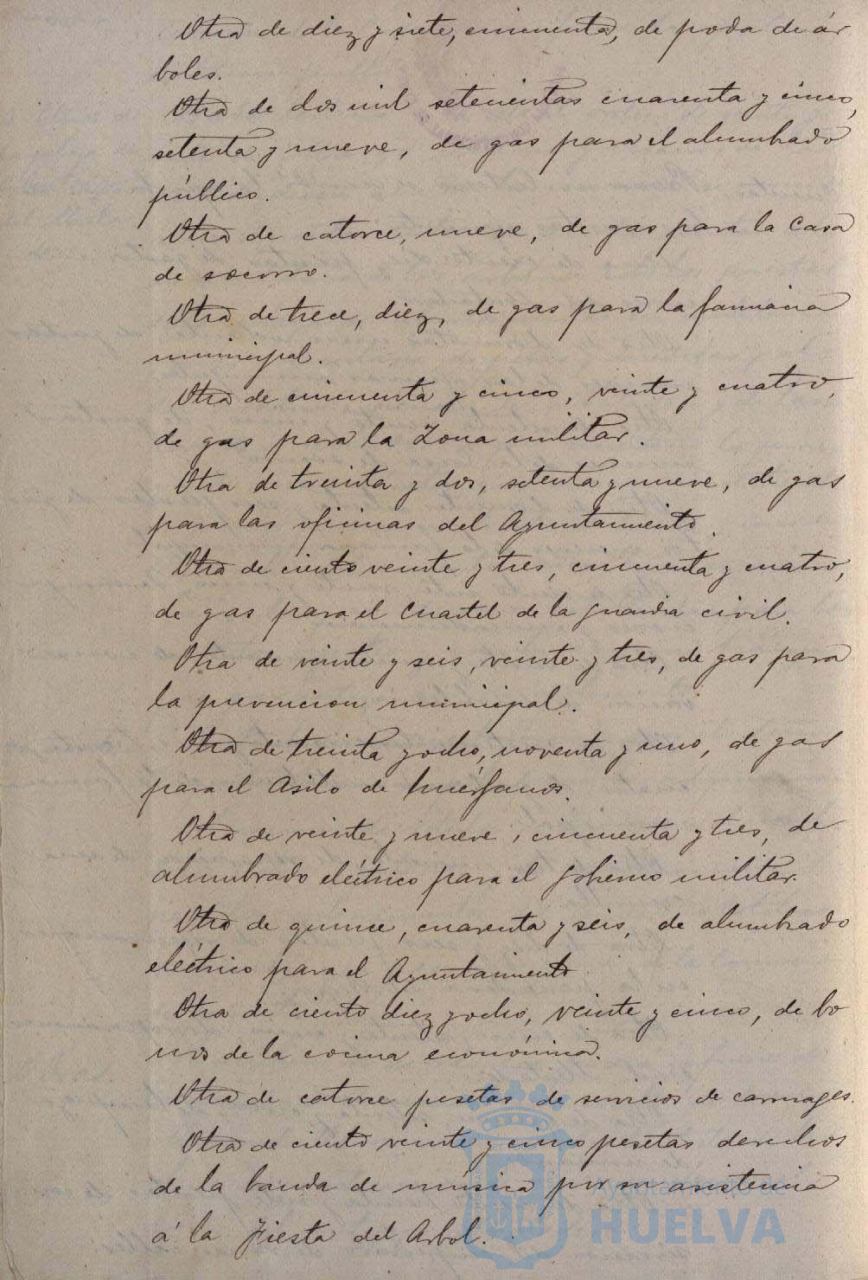 Otra de diez y siete, cincuenta, de poda de ár
boles.
Otra de dos mil setecientas cuarenta y cinco,
setenta y nueve, de gas para el alumbrado
público.
Otra de catorce, nueve, de gas para la Casa
de socorro.
Otra de trece, diez, de gas para la farmacia
municipal.
Otra de cincuenta y cinco, veinte y cuatro,
de gas para la Zona militar.
Otra de treinta y dos, setenta y nueve, de gas
para las oficinas del Ayuntamiento.
Otra de ciento veinte y tres, cincuenta y cuatro,
de gas para el Cuartel de la guardia civil.
Otra de veinte y seis, veinte y tres, de gas para
la prevencion municipal.
Otra de treinta y ocho, noventa y uno, de gas
para el Asilo de huérfanos.
Otra de veinte y nueve, cincuenta y tres, de
alumbrado eléctrico para el gobierno militar.
Otra de quince, cuarenta y seis, de alumbrado
eléctrico para el Ayuntamiento
Otra de ciento diez y ocho, veinte y cinco, de bo
nos de la cocina económica.
Otra de catorce pesetas de servicios de carruages.
Otra de ciento veinte y cinco pesetas derechos
de la banda de música por su asistencia
á la Fiesta del Arbol.
HUELVA